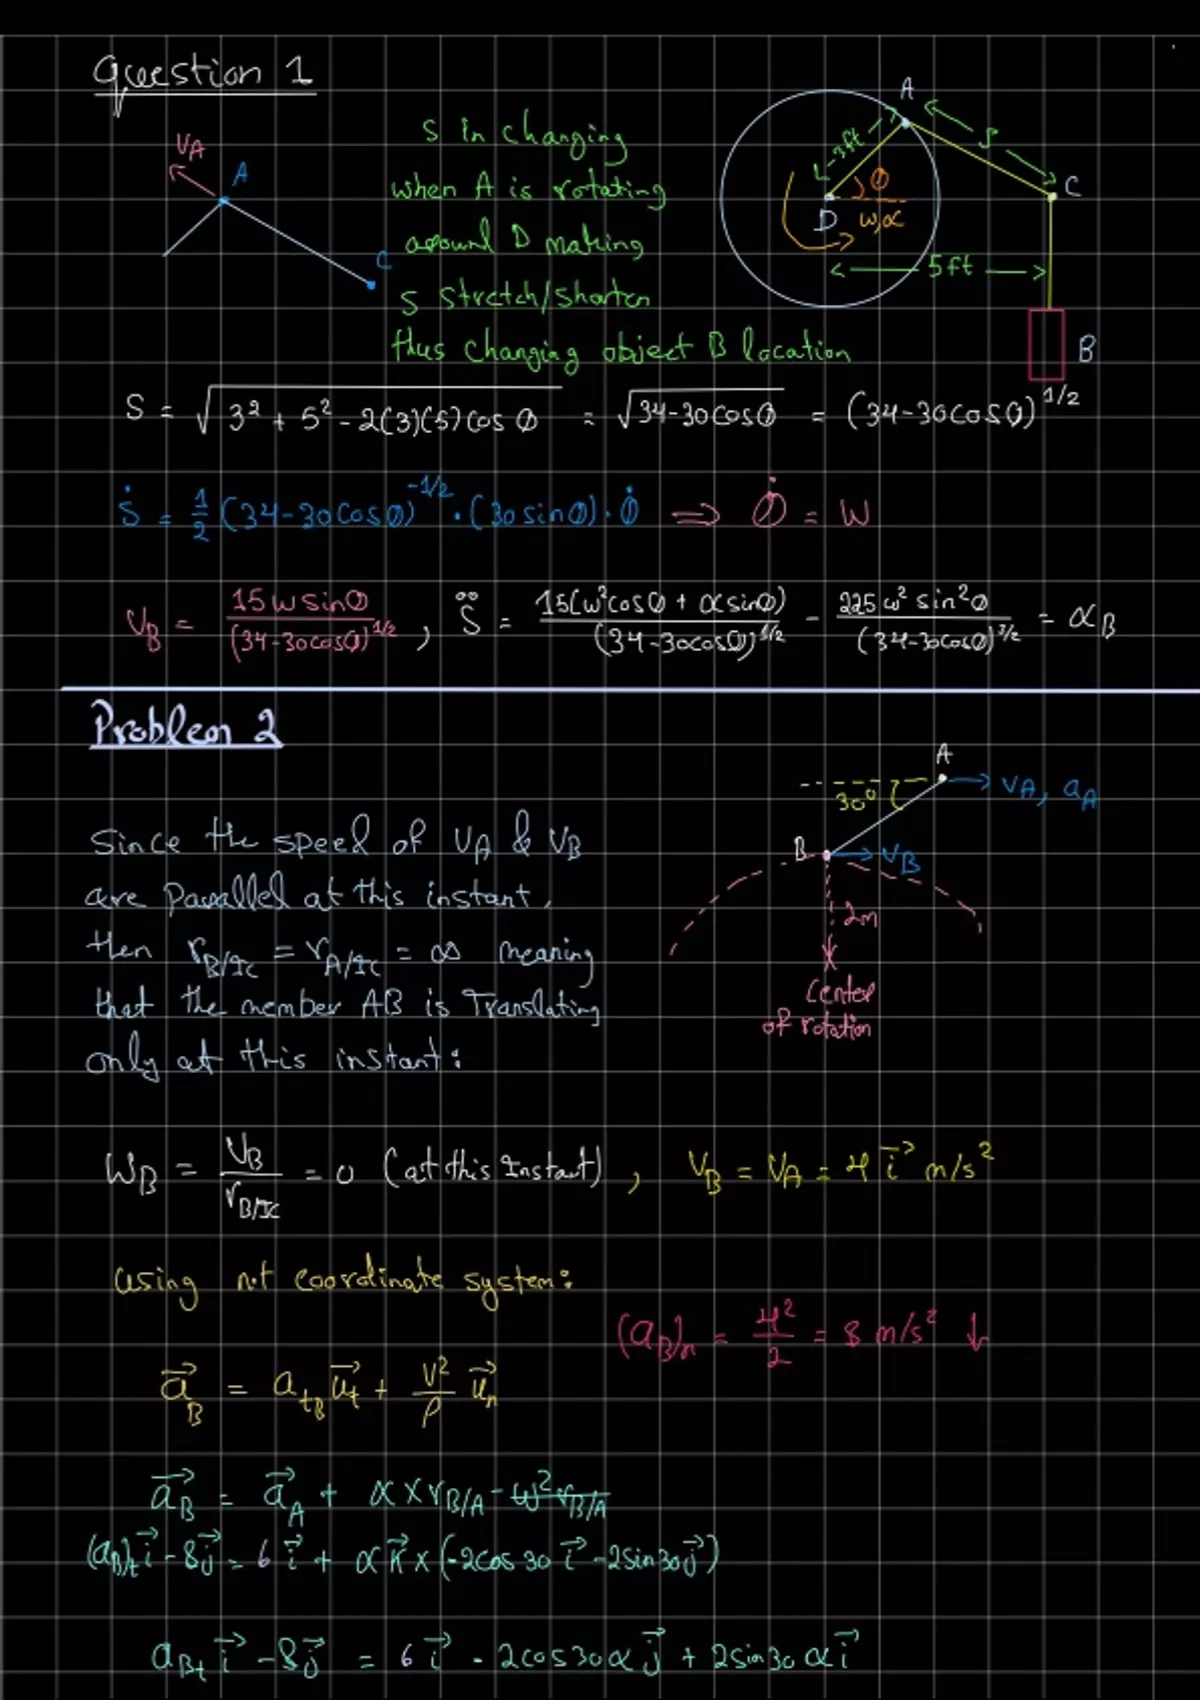 Question 1
V_A
A
C
S in changing
when A is rotating
around D making
S stretch/shorten
thus changing object B location
A
3ft
S
θ
C
D
ω,α
5ft
B
S = √(3² + 5² - 2(3)(5)cos θ) = √(34-30cosθ) = (34-30cosθ)^1/2
Ṡ = 1/2 (34-30cosθ)^-1/2 · (30sinθ)·θ̇ ⇒ θ̇ = W
V_B = 15WsinΘ/(34-30cosθ)^1/2 , S̈ = 15(ω²cosθ + αsinθ)/(34-30cosθ)^1/2 - 225ω² sin²θ/(34-30cosθ)^3/2 = α_B
Problem 2
A
30°
V_A, a_A
B
V_B
2m
Center
of rotation
Since the speed of V_A & V_B
are parallel at this instant,
then r_B/IC = r_A/IC = ∞ meaning
that the member AB is Translating
only at this instant:
W_B = V_B/r_B/IC = 0 (at this Instant) , V_B = V_A = 4 i⃗ m/s²
Using n-t coordinate system:
(a_B)_n = 4²/2 = 8 m/s² ↓
a⃗_B = a_tB u⃗_t + V²/ρ u⃗_n
a⃗_B = a⃗_A + α × r_B/A - ω² r_B/A
(a_B)_t i⃗ - 8j⃗ = 6 i⃗ + αK⃗ × (-2cos30 i⃗ - 2sin30j⃗)
a_Bt i⃗ - 8j⃗ = 6 i⃗ - 2cos30α j⃗ + 2sin30 α i⃗